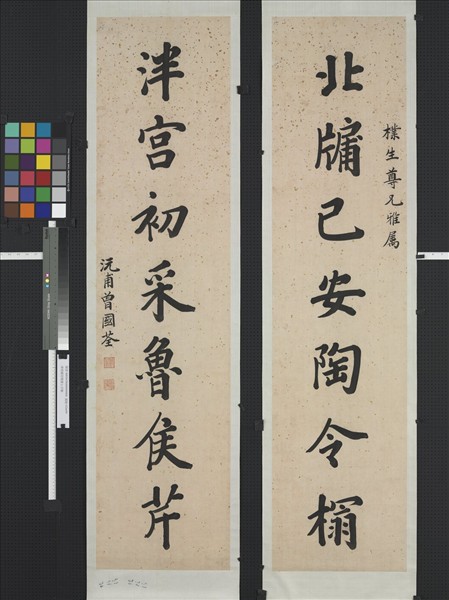 樸生尊兄雅屬
北牖已安陶令榻
泮宮初采魯侯芹
沅甫曾國荃